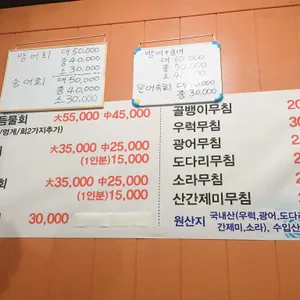 방어회 대 50,000
중 40,000
소 30,000
숭어회 대 50,000
중 40,000
소 30,000
방어+숭어
대 60,000
중 50,000
소 4
중 30,000
듬물회 大55,000 中45,000
/멍게/회2가지추가)
大35,000 中25,000
(1인분)15,000
회 大35,000 中25,000
(1인분)15,000
30,000
골뱅이무침
우럭무침
광어무침
도다리무침
소라무침
산간제미무침
원산지 국내산(우럭,광어,도다
간제미,소라), 수입산